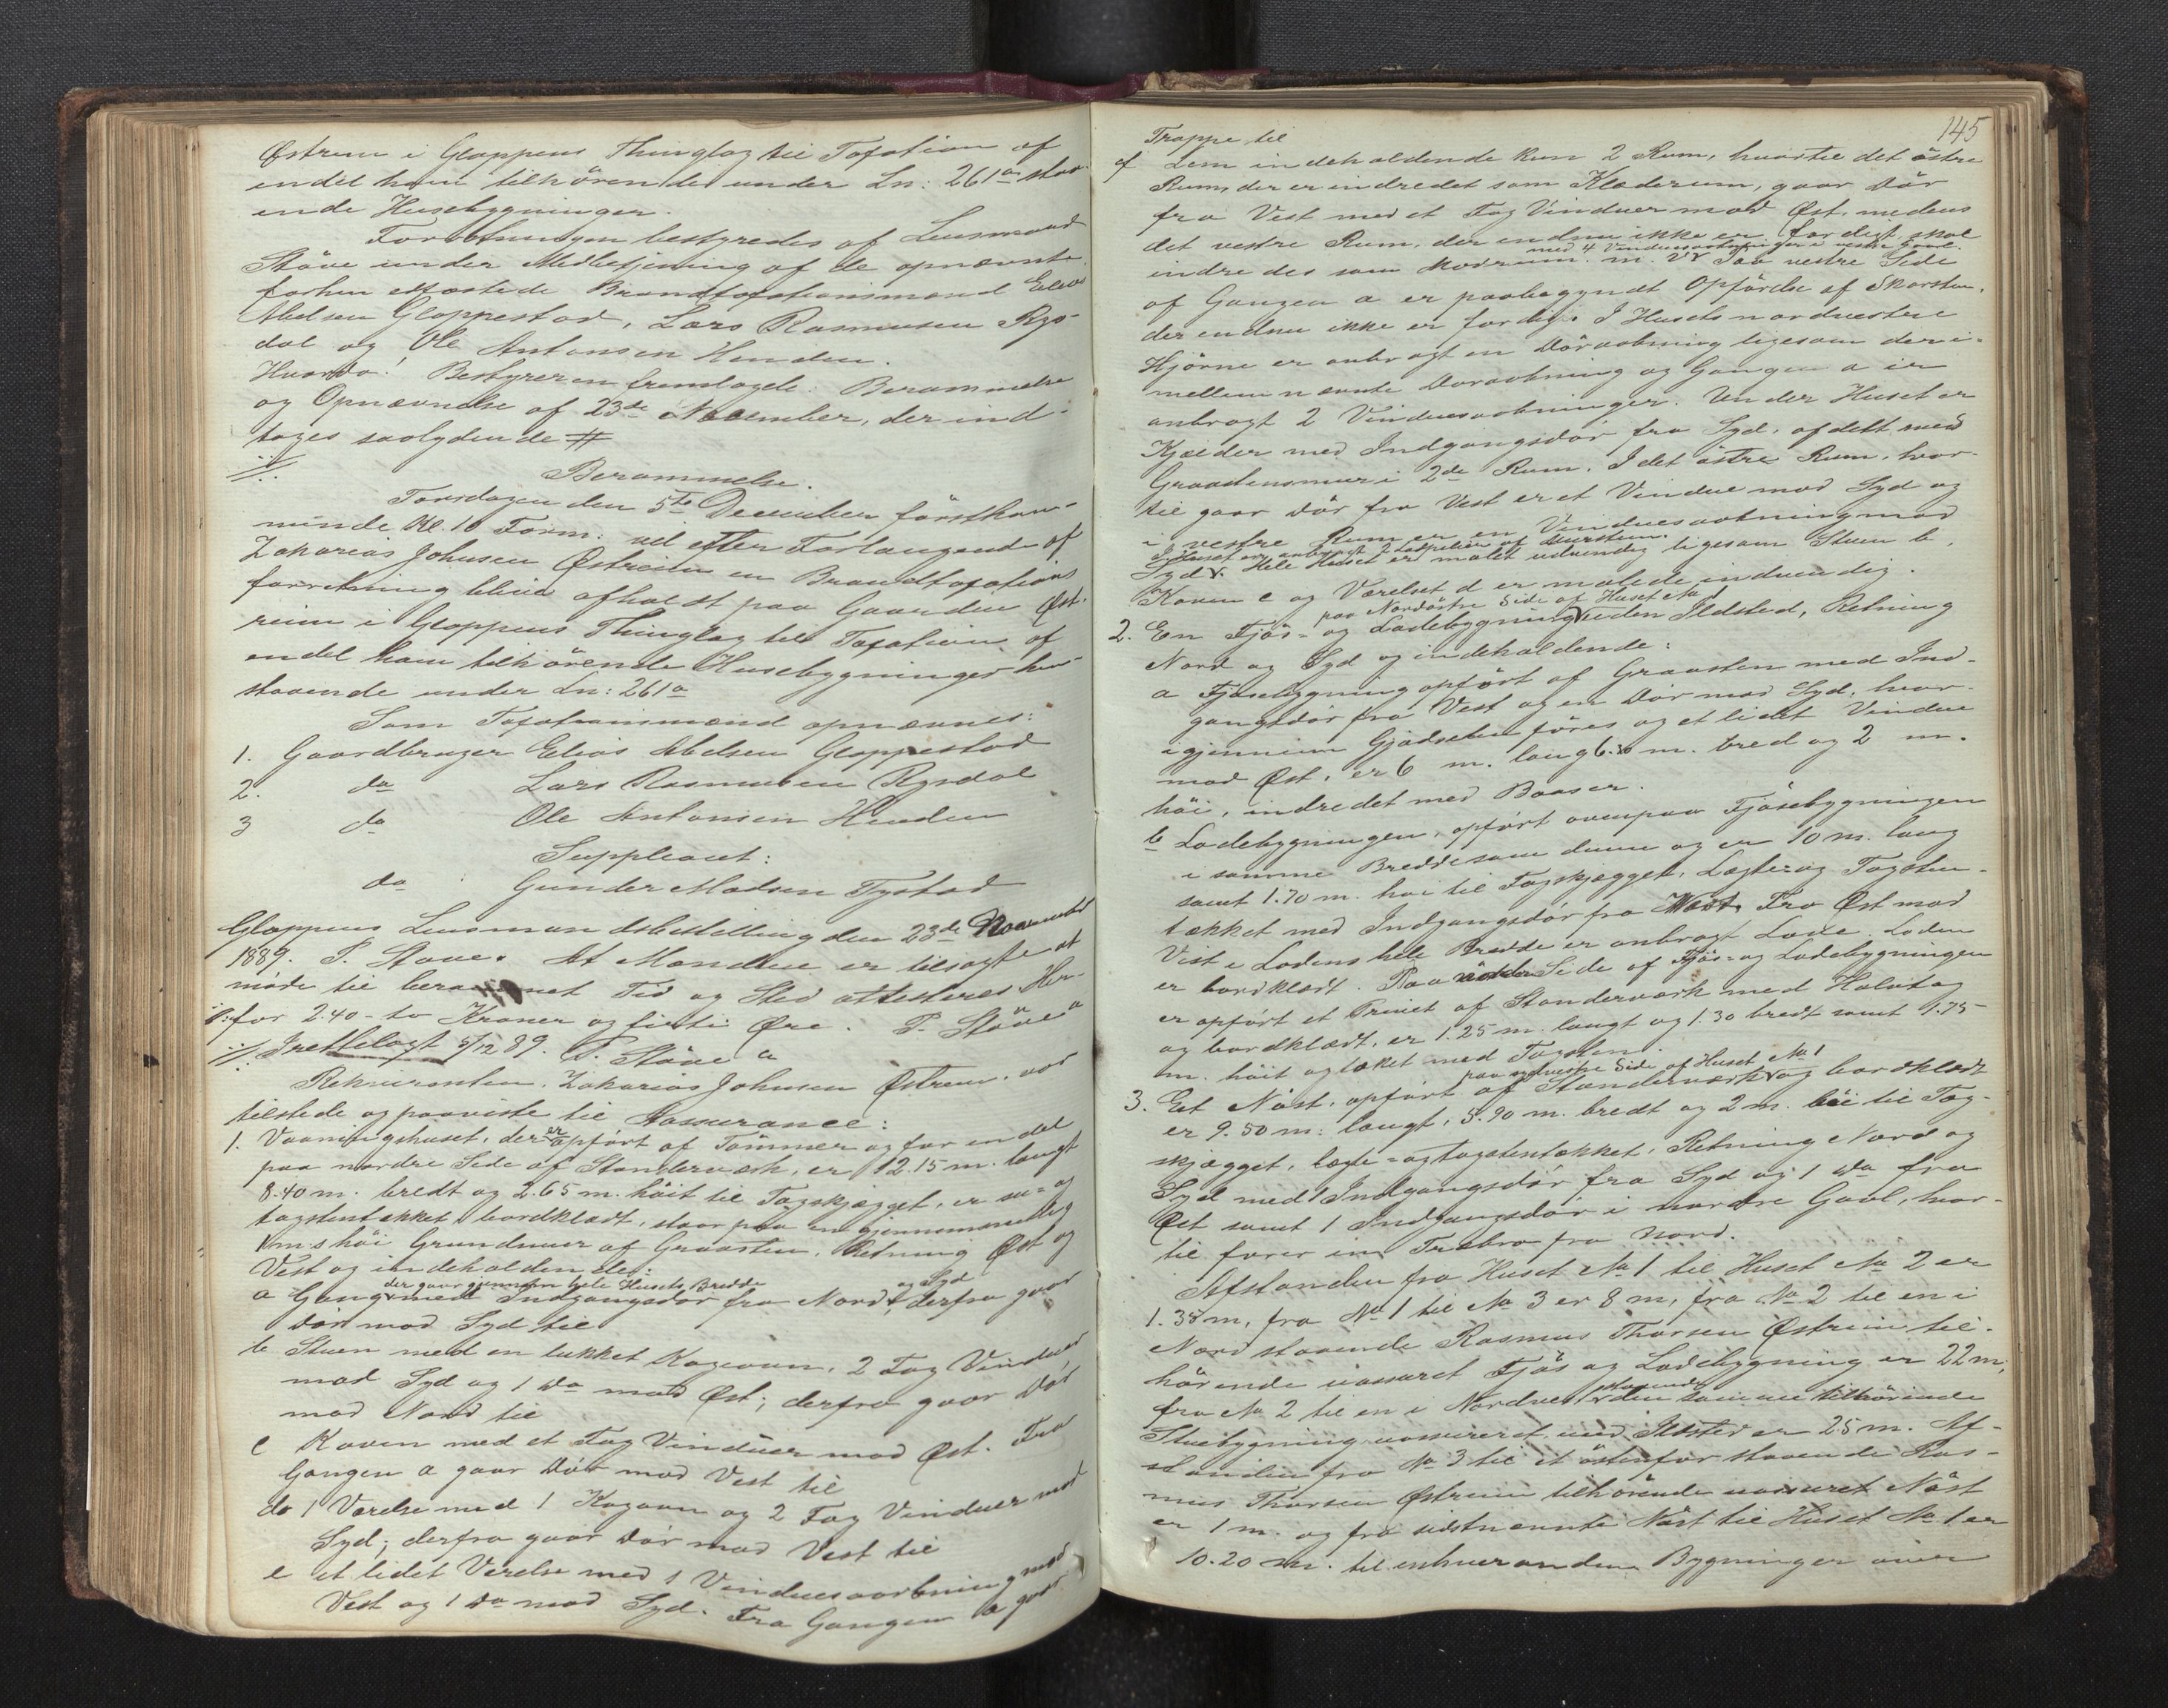 Østrem i Gloppens Thinglag til Taxation af
endel ham tilhörende under Ln: 261a staa-
ende Husebygninger.
Forretningen bestyredes af Lensmand
Stöve under Medbetjening af de opnævnte
forhen edfæstede Brandtaxationsmænd Elias
Abelsen Gloppestad, Lars Rasmusen Rys-
dal og Ole Antonsen Henden.
Hvorda! Bestyreren fremlagde: Berammelse
og Opnævnelse af 23de November, der ind-
tages saalydende #
Berammelse.
Torsdagen den 5te December förstkom-
mende Kl. 10 Form. vil efter Forlangende af
Zakarias Johnsen Østreim en Brandtaxations
forretning blive afholdt paa Gaarden Øst-
reim i Gloppens Thinglag til Taxation af
endel ham tilhörende Husebygninger hen-
staaende under Ln: 261a
Som Taxationsmænd opnævnes:
1. Gaardbruger Elias Abelsen Gloppestad
2. do Lars Rasmusen Rysdal
3 do Ole Antonsen Henden
Suppleant:
do Gunder Madsen Tystad
Gloppens Lensmandsbestilling den 23de November
1889. P. Stöve. At Mændene er tilsagte at
möde til berammet Tid og Sted attesteres Her-
for 2.40 - to Kroner og firti Øre. P. Stöve
Irettelagt 5/12 89. P. Stöve
Rekvirenten, Zakarias Johnsen Østrem, var
tilstede og paaviste til Assurance:
1. Vaaningshuset, der er opfört af Tömmer og for endel
paa nordre Side af Standerværk, er 12.15 m. langt
8.40 m. bredt og 2.65 m. höit til Tagskjægget, er su- og
tagstentækket, bordklædt, staar paa en gjennemsnitlig
1 m.s höi Grundmuur af Graasten, Retning Øst og
Vest og indeholdende:
der gaar gjennem hele Husets Bredde
og Syd
a Gang med Indgangsdör fra Nord, derfra gaar
Dör mod Syd til
b. Stuen med en lukket Kogeovn, 2 Fag Vinduer
mod Syd og 1 do mod Øst; derfra gaar Dör
mod Nord til
c Koven med et Fag Vinduer mod Øst. Fra
Gangen a gaar Dör mod Vest til
d 1 Værelse med 1 Kogeovn og 2 Fag Vinduer mod
Syd; derfra gaar Dör mod Vest til
e et lidet Værelse med 1 Vinduesaabning mod
Vest og 1 do mod Syd. Fra Gangen a gaar
145
Trappe til
f Lem indeholdende kun 2 Rum, hvortil det östre
Rum, der er indredet som Klæderum, gaar Dör
fra Vest med et Fag Vinduer mod Øst, medens
det vestre Rum, der endnu ikke er færdigt, skal
med 4 Vinduesaabninger i vestre Gavl.
indredes som Madrum. m. v. Paa vestre Side
af Gangen a er paabegyndt Opförelse af Skorsten,
der endnu ikke er færdig. I Husets nordvestre
Hjörne er anbragt en Döraabning ligesom der i-
mellem nævnte Döraabning og Gangen a er
anbragt 2 Vinduesaabninger. Under Huset er
Kjælder med Indgangsdör fra Syd, afdelt med
Graastensmur i 2de Rum. I det östre Rum, hvor-
til gaar Dör fra Vest er et Vindue mod Syd og
i vestre Rum er en Vinduesaabning mod
I Huset er anbragt 2 af Mursten.
Syd. Hele Huset er malet udvendig ligesom Stuen b,
Koven c og Værelset d er malede indvendig.
paa Nordöstre Side af Huset No 1
2. En Fjös- og Ladebygning uden Ildsted, Retning
Nord og Syd og indeholdende:
a Fjösebygning opfört af Graasten med Ind-
gangsdör fra Vest og en Dör mod Syd, hvor-
igjennem Gjödselen föres og et lidet Vindue
mod Øst, er 6 m. lang 6.30 m. bred og 2 m.
höi, indredet med Baaser.
b Ladebygningen, opfört ovenpaa Fjösebygningen
i samme Bredde som denne og er 10 m. lang
samt 1.70 m. höi til Tagskjægget, Lægter og Tagsten-
tækket med Indgangsdör fra West. Fra Øst mod
Vest i Ladens hele Bredde er anbragt Laave. Laden
er bordklædt. Paa Side af Fjös- og Ladebygningen
er opfört et Privet af Standerværk med Halvtag
og bordklædt, er 1.25 m. langt og 1.30 bredt samt 1.75
m. höit og tækket med Tagsten.
paa sydvestre Side af Huset No 1
3. Et Nöst, opfört af Standerværk og bordklædt
er 9.50 m. langt, 5.90 m. bredt og 2 m. höi til Tag-
skjægget, lægte- og tagstentækket, Retning Nord og
Syd med 1 Indgangsdör fra Syd og 1 do fra
Øst samt 1 Indgangsdör i nordre Gavl, hvor-
til förer en Træbro fra Nord.
Afstanden fra Huset No 1 til Huset No 2 er
1.38 m, fra No 1 til No 3 er 8 m, fra No 2 til en i
Nord staaende Rasmus Thorsen Østreim til-
hörende uassureret Fjös og Ladebygning er 22 m,
staaende
fra No 2 til en i Nordvest den samme tilhörende
Stuebygning uassureret med Ildsted er 25 m. Af-
standen fra No 3 til et östenfor staaende Ras-
mus Thorsen Østreim tilhörende uassureret Nöst
er 1 m. og fra sidstnævnte Nöst til Huset No 1 er
10.20 m. til enhver anden Bygninger over